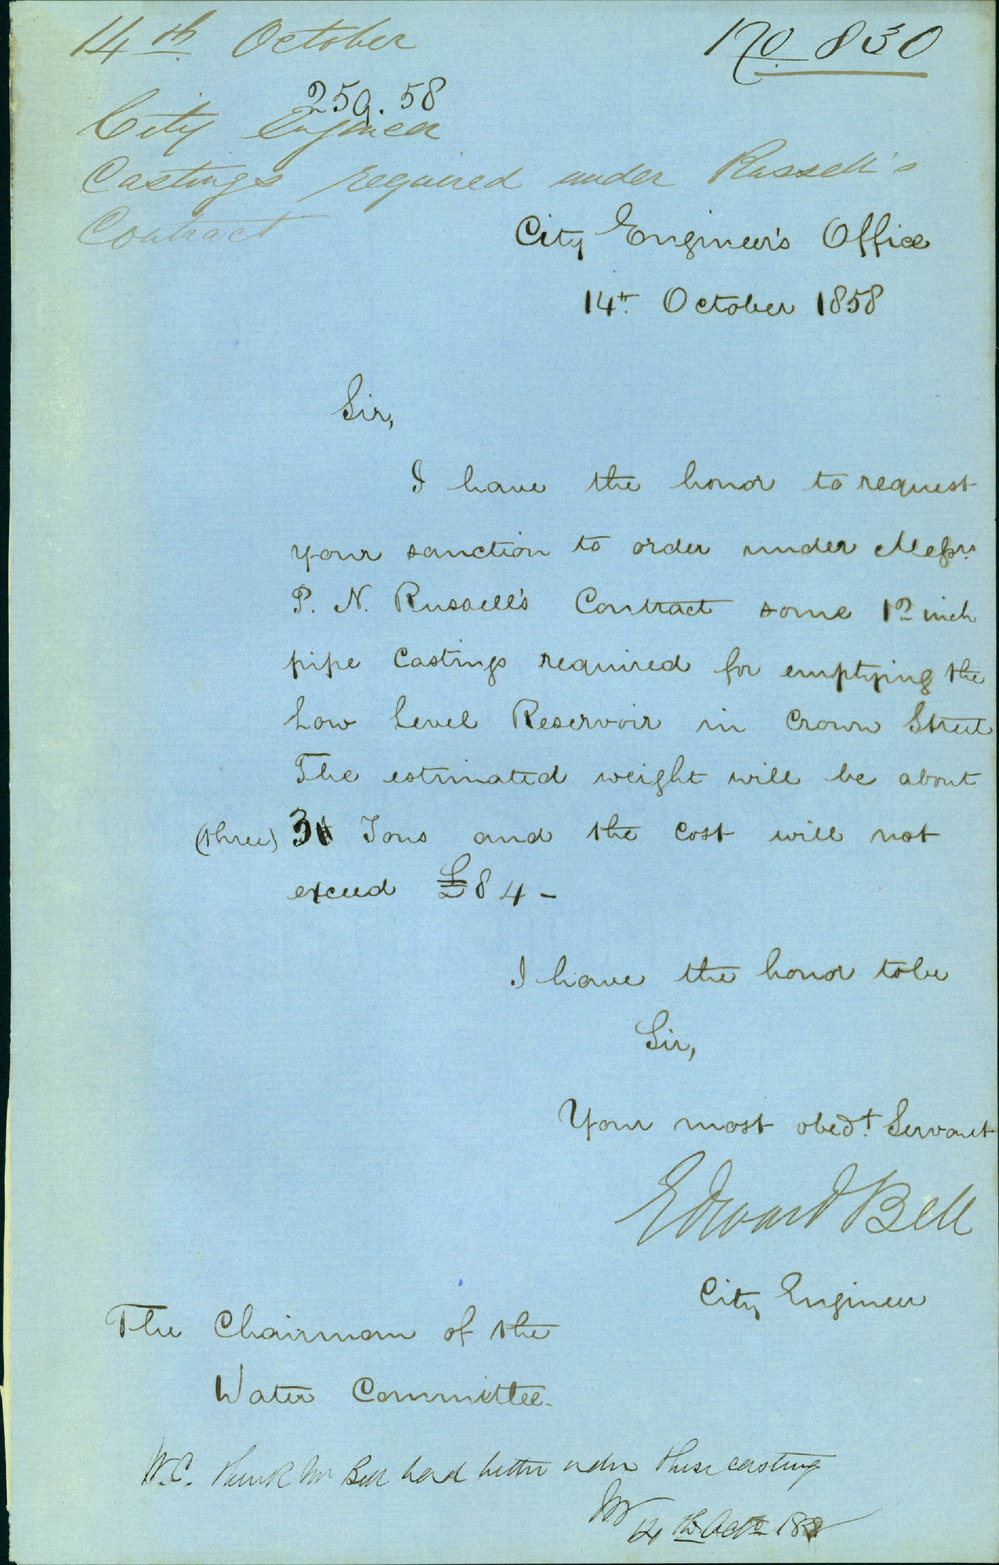 14th October
No 830
259.58
City Engineer
Castings required under Russell's
Contract
City Engineer's Office
14th October 1858
Sir,
I have the honor to request
your sanction to order under Messrs
P. N. Russell's Contract some 12 inch
pipe Castings required for emptying the
Low Level Reservoir in Crown Street
The estimated weight will be about
(three) 3 Tons and the cost will not
exceed £84-
I have the honor to be
Sir,
Your most obedt Servant
Edward Bell
City Engineer
The Chairman of the
Water Committee.
W.C. think Mr Bell had better order these castings
14th Octr